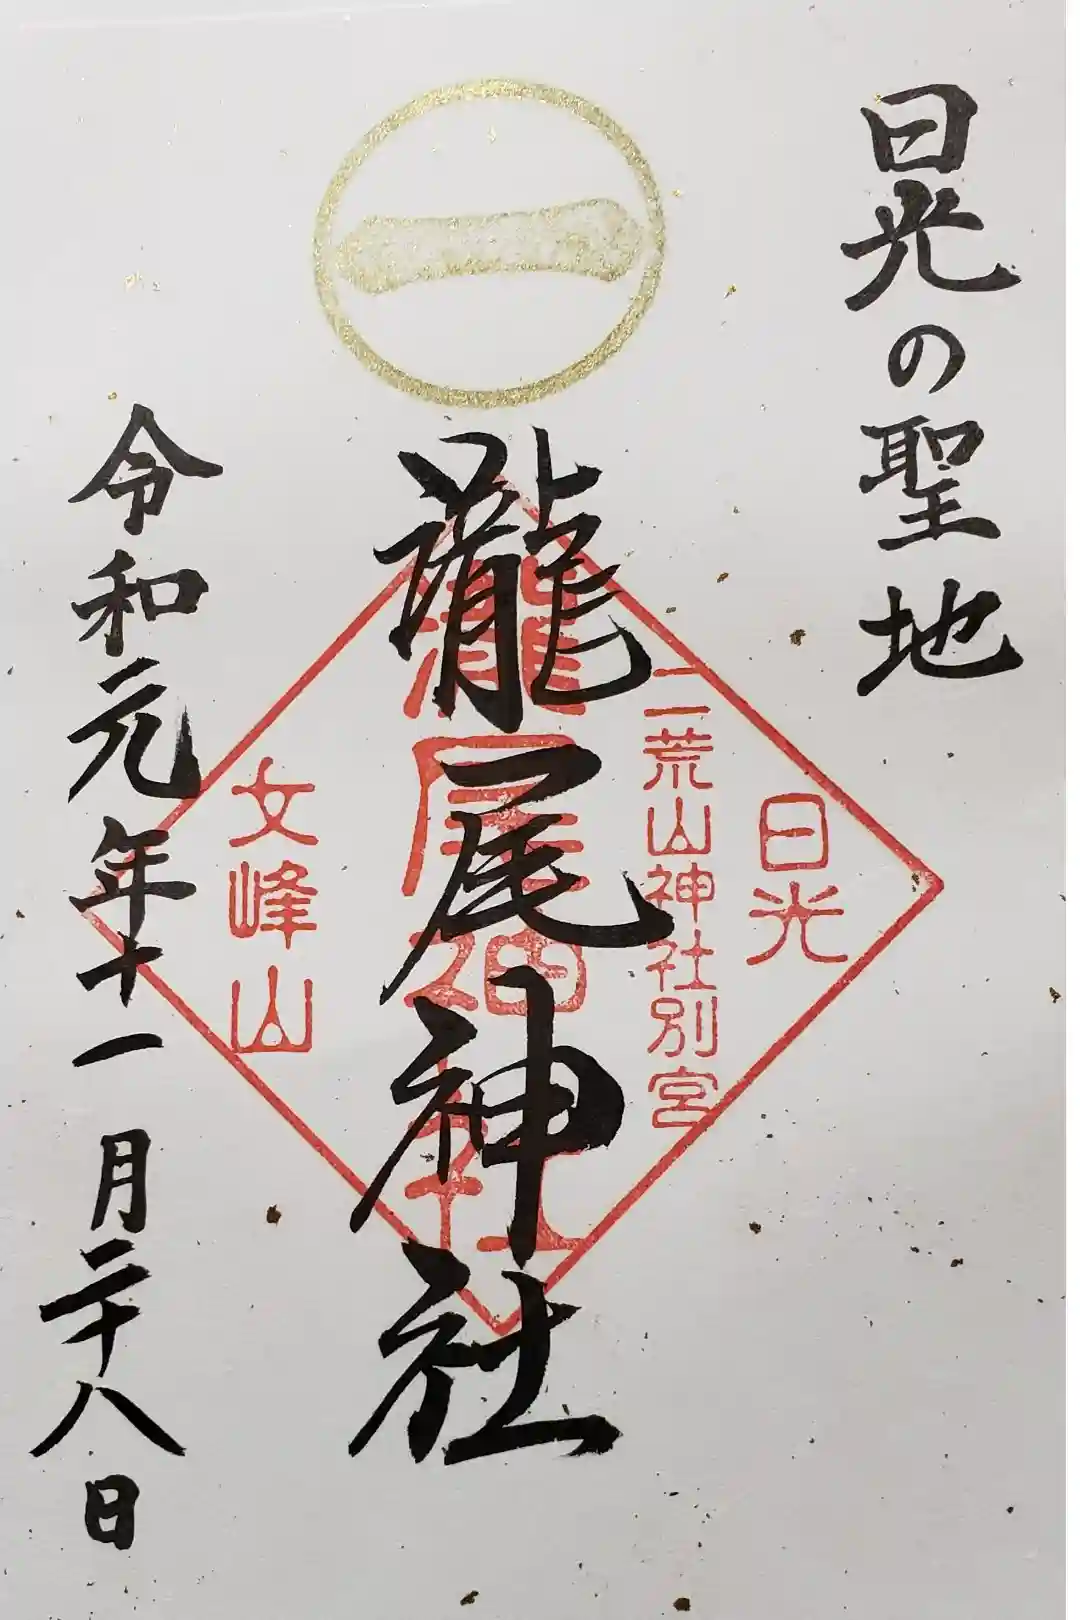 日光の聖地
日光
二荒山神社別宮
一
瀧尾神社
瀧尾神社
文峰山
令和元年十一月二十八日